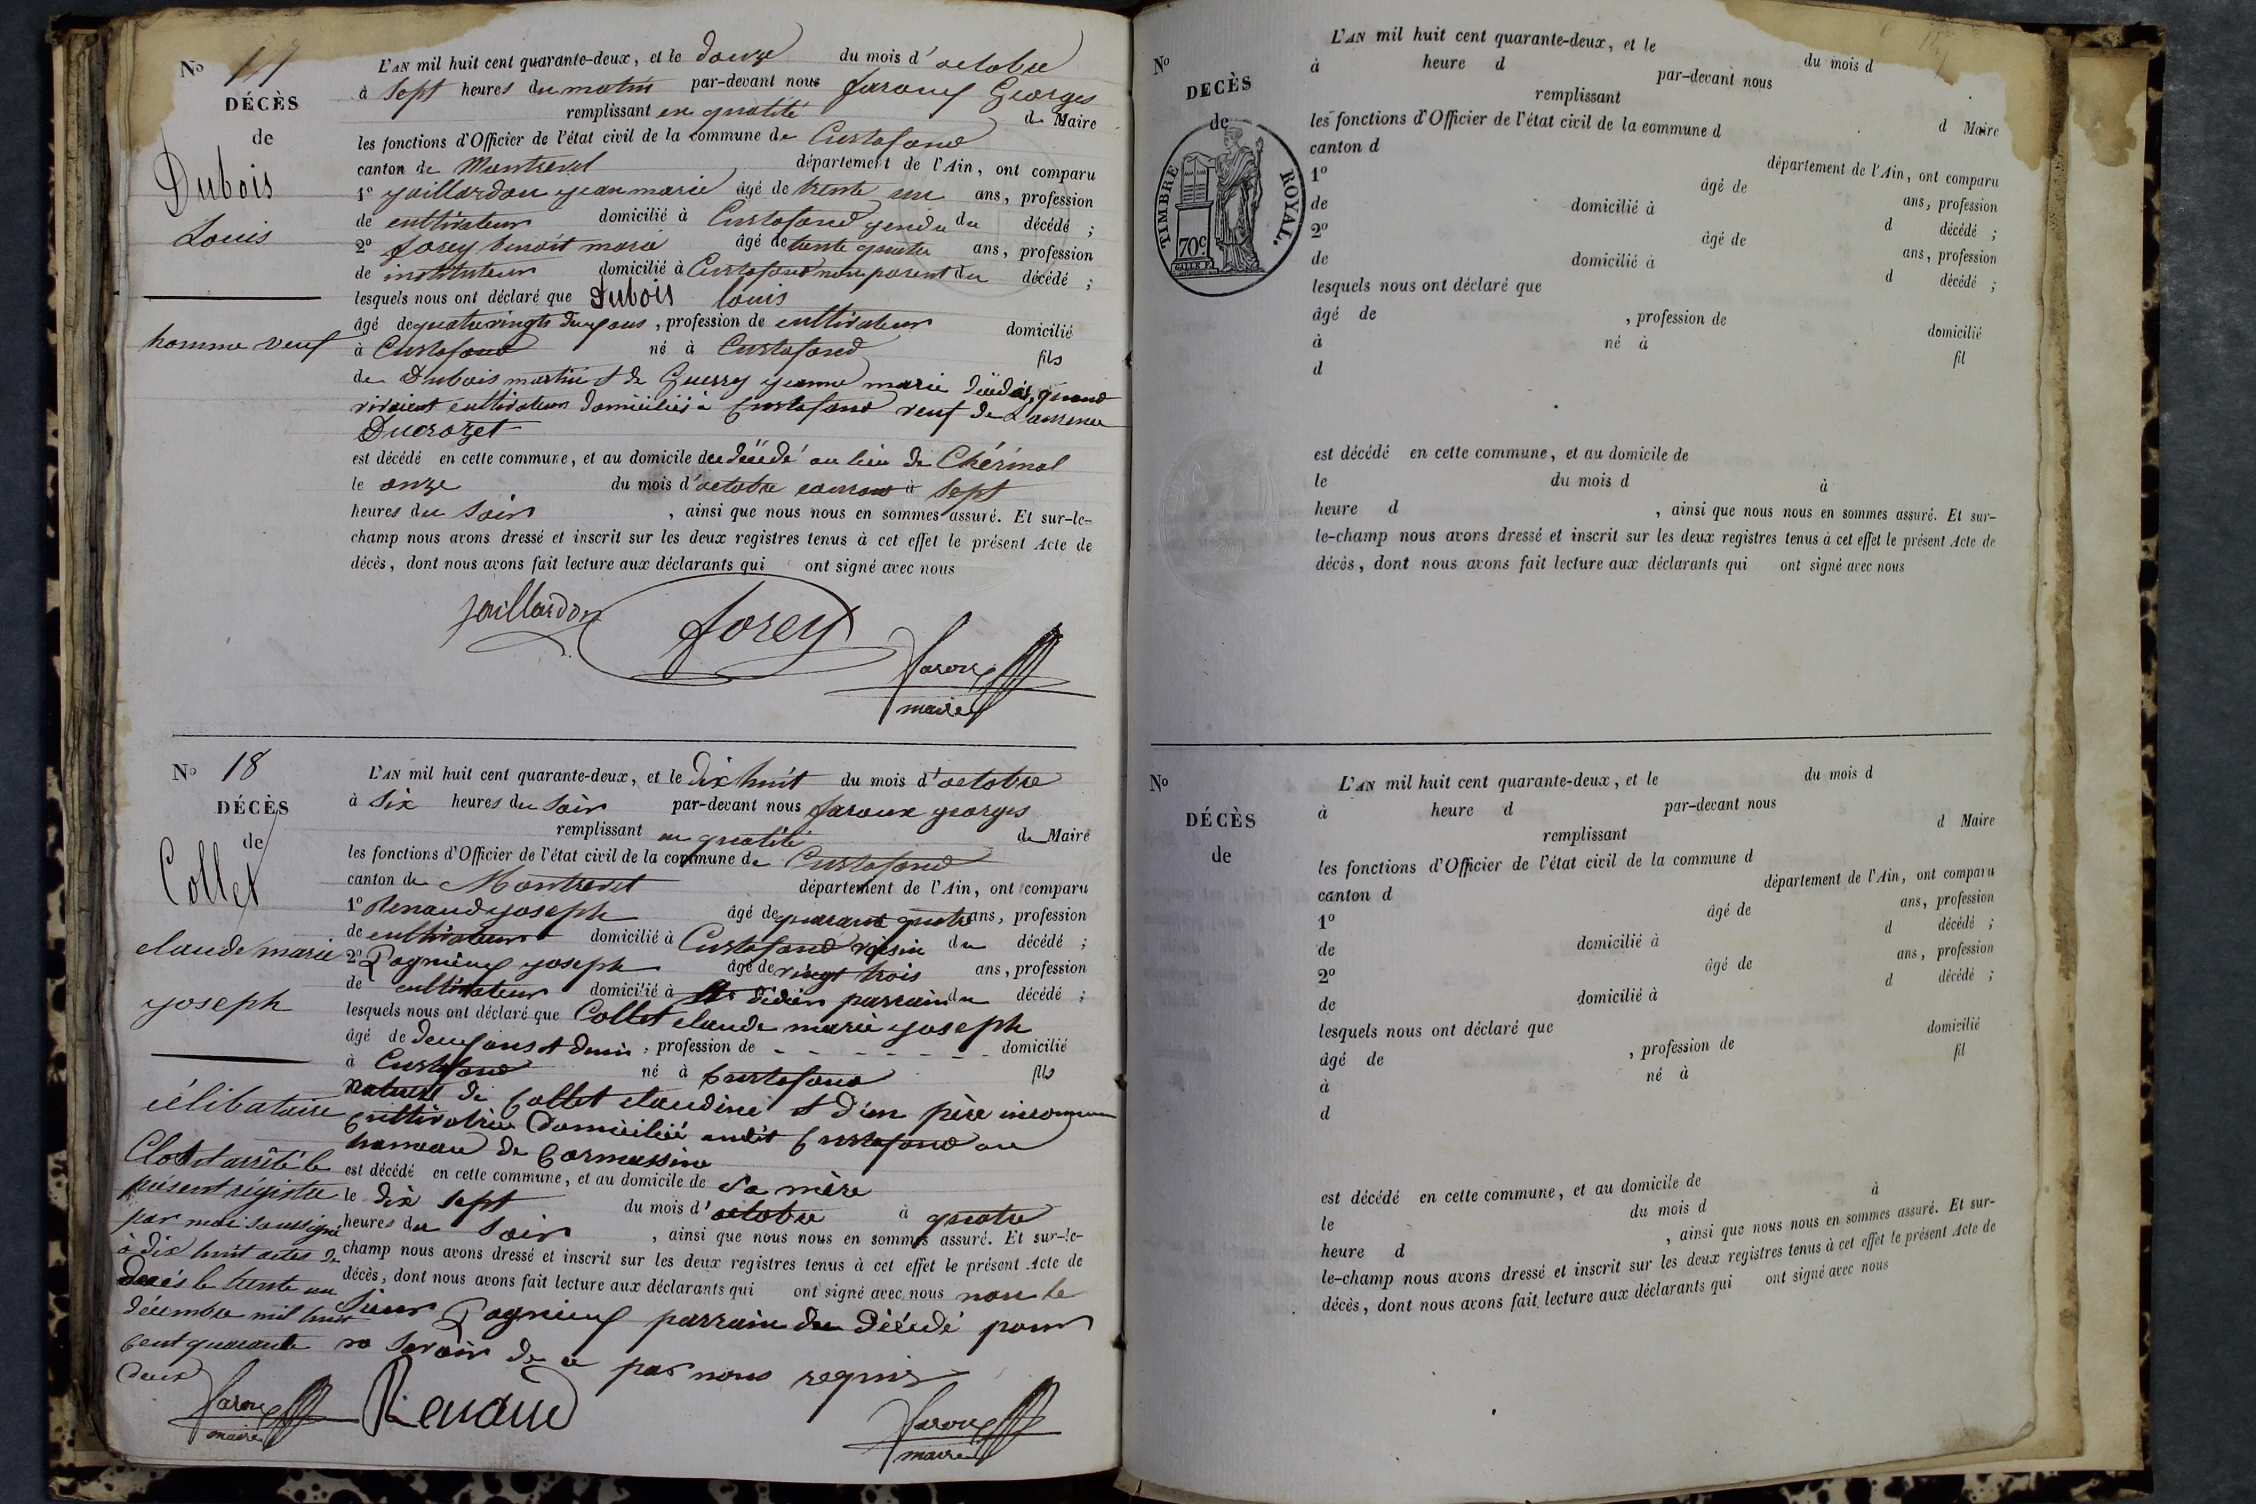 No 17
DÉCÈS
de
Dubois
Louis
homme veuf
L'AN mil huit cent quarante-deux, et le douze du mois d'octobre
à sept heures du matin par-devant nous faroux Georges
remplissant en qualité de Maire
les fonctions d'Officier de l'état civil de la commune de Curtafond
canton de Montrevel département de l'Ain, ont comparu
1o jaillardon jean marie âgé de trente un ans, profession
de cultivateur domicilié à Curtafond gendre du décédé ;
2o forey benoit marie âgé de trente quatre ans, profession
de instituteur domicilié à Curtafond non parent du décédé ;
lesquels nous ont déclaré que Dubois louis
âgé de quatre vingts deux ans, profession de cultivateur domicilié
à Curtafond né à Curtafond fils
de Dubois martin et de Guerry jeanne marie décédés, quand
vivaient cultivateurs domiciliés à Curtafond veuf de Laurence
Ducrozet
est décédé en cette commune, et au domicile du décédé au lieu de Chérinal
le onze du mois d'octobre courant à sept
heures du soir, ainsi que nous nous en sommes assuré. Et sur-le-
champ nous avons dressé et inscrit sur les deux registres tenus à cet effet le présent Acte de
décès, dont nous avons fait lecture aux déclarants qui ont signé avec nous
jaillardon forey
faroux
maire
No 18
DÉCÈS
de
Collet
claude marie
joseph
célibataire
L'AN mil huit cent quarante-deux, et le dix huit du mois d'octobre
à six heures du soir par-devant nous faroux georges
remplissant en qualité de Maire
les fonctions d'Officier de l'état civil de la commune de Curtafond
canton de Montrevel département de l'Ain, ont comparu
1o Renaud joseph âgé de quarante quatre ans, profession
de cultivateur domicilié à Curtafond voisin du décédé ;
2o Pagnieux joseph âgé de vingt trois ans, profession
de cultivateur domicilié à St didier parrain du décédé ;
lesquels nous ont déclaré que Collet claude marie joseph
âgé de deux ans et demi, profession de - - - - - - - domicilié
à Curtafond né à Curtafond fils
naturel de Collet claudine et d'un père inconnu
cultivatrice domiciliée audit Curtafond au
hameau de Cormassine
est décédé en cette commune, et au domicile de sa mère
le dix sept du mois d'octobre à quatre
heures du soir, ainsi que nous nous en sommes assuré. Et sur-le-
champ nous avons dressé et inscrit sur les deux registres tenus à cet effet le présent Acte de
décès, dont nous avons fait lecture aux déclarants qui ont signé avec nous non le
sieur Pagnieux parrain du décédé pour
ne savoir de ce par nous requis
Renaud
faroux
maire
Clos et arrêté le
présent régistre
par moi soussigné
à dix huit actes de
décès le trente un
décembre mil huit
cent quarante
deux
faroux
maire
No
DÉCÈS
de
TIMBRE ROYAL.
70c
L'AN mil huit cent quarante-deux, et le du mois d
à heure d par-devant nous
remplissant d Maire
les fonctions d'Officier de l'état civil de la commune d
canton d département de l'Ain, ont comparu
1o âgé de ans, profession
de domicilié à d décédé ;
2o âgé de ans, profession
de domicilié à d décédé ;
lesquels nous ont déclaré que
âgé de , profession de domicilié
à né à fil
d
est décédé en cette commune, et au domicile de
le du mois d à
heure d , ainsi que nous nous en sommes assuré. Et sur-
le-champ nous avons dressé et inscrit sur les deux registres tenus à cet effet le présent Acte de
décès, dont nous avons fait lecture aux déclarants qui ont signé avec nous
No
DÉCÈS
de
L'AN mil huit cent quarante-deux, et le du mois d
à heure d par-devant nous
remplissant d Maire
les fonctions d'Officier de l'état civil de la commune d
canton d département de l'Ain, ont comparu
1o âgé de ans, profession
de domicilié à d décédé ;
2o âgé de ans, profession
de domicilié à d décédé ;
lesquels nous ont déclaré que
âgé de , profession de domicilié
à né à fil
d
est décédé en cette commune, et au domicile de
le du mois d à
heure d , ainsi que nous nous en sommes assuré. Et sur-
le-champ nous avons dressé et inscrit sur les deux registres tenus à cet effet le présent Acte de
décès, dont nous avons fait lecture aux déclarants qui ont signé avec nous